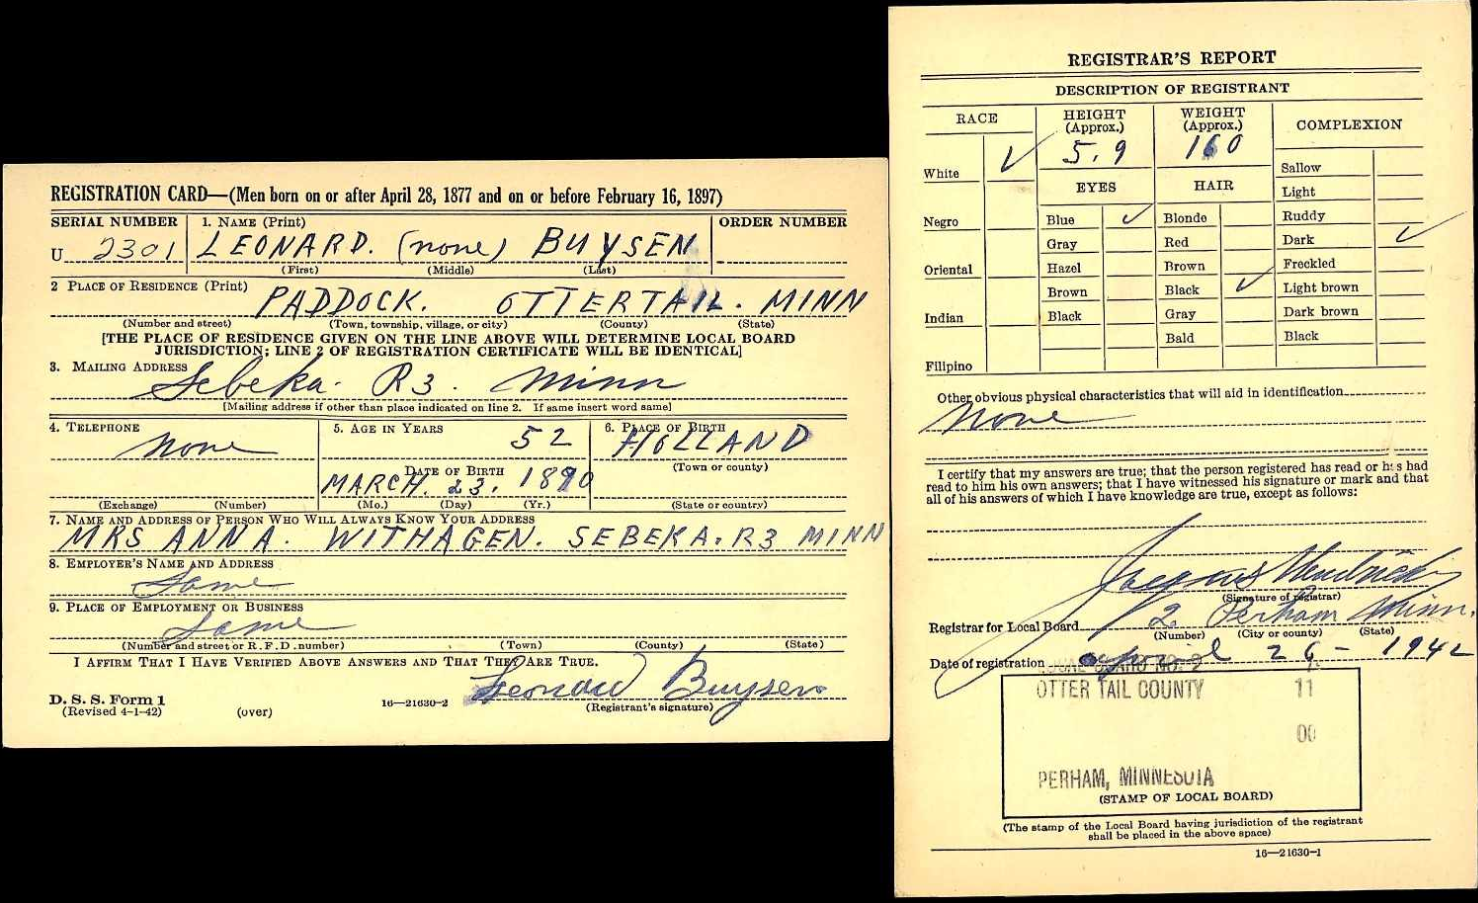 REGISTRATION CARD—(Men born on or after April 28, 1877 and on or before February 16, 1897)
SERIAL NUMBER 1. NAME (Print) ORDER NUMBER
U 2301 LEONARD. (none) BUYSEN
(First) (Middle) (Last)
2 PLACE OF RESIDENCE (Print)
PADDOCK. OTTERTAIL. MINN
(Number and street) (Town, township, village, or city) (County) (State)
[THE PLACE OF RESIDENCE GIVEN ON THE LINE ABOVE WILL DETERMINE LOCAL BOARD
JURISDICTION; LINE 2 OF REGISTRATION CERTIFICATE WILL BE IDENTICAL]
3. MAILING ADDRESS
Sebeka. R3. Minn
[Mailing address if other than place indicated on line 2. If same insert word same]
4. TELEPHONE 5. AGE IN YEARS 6. PLACE OF BIRTH
None 52 HOLLAND
DATE OF BIRTH (Town or county)
MARCH. 23. 1890
(Exchange) (Number) (Mo.) (Day) (Yr.) (State or country)
7. NAME AND ADDRESS OF PERSON WHO WILL ALWAYS KNOW YOUR ADDRESS
MRS ANNA. WITHAGEN. SEBEKA. R3 MINN
8. EMPLOYER'S NAME AND ADDRESS
Same
9. PLACE OF EMPLOYMENT OR BUSINESS
Same
(Number and street or R. F. D. number) (Town) (County) (State)
I AFFIRM THAT I HAVE VERIFIED ABOVE ANSWERS AND THAT THEY ARE TRUE.
Leonard Buysen
D. S. S. Form 1
(Revised 4-1-42) (over) 16—21630-2 (Registrant's signature)
REGISTRAR'S REPORT
DESCRIPTION OF REGISTRANT
RACE HEIGHT (Approx.) WEIGHT (Approx.) COMPLEXION
5.9 160
White ✓ Sallow
EYES HAIR Light
Negro Blue ✓ Blonde Ruddy
Gray Red Dark ✓
Oriental Hazel Brown Freckled
Brown Black ✓ Light brown
Indian Black Gray Dark brown
Bald Black
Filipino
Other obvious physical characteristics that will aid in identification
None
I certify that my answers are true; that the person registered has read or has had
read to him his own answers; that I have witnessed his signature or mark and that
all of his answers of which I have knowledge are true, except as follows:
(Signature of registrar)
Registrar for Local Board 2 Perham Minn.
(Number) (City or county) (State)
Date of registration April 26 - 1942
LOCAL BOARD NO. 2
OTTER TAIL COUNTY 11
00
PERHAM, MINNESOTA
(STAMP OF LOCAL BOARD)
(The stamp of the Local Board having jurisdiction of the registrant
shall be placed in the above space)
16—21630-1